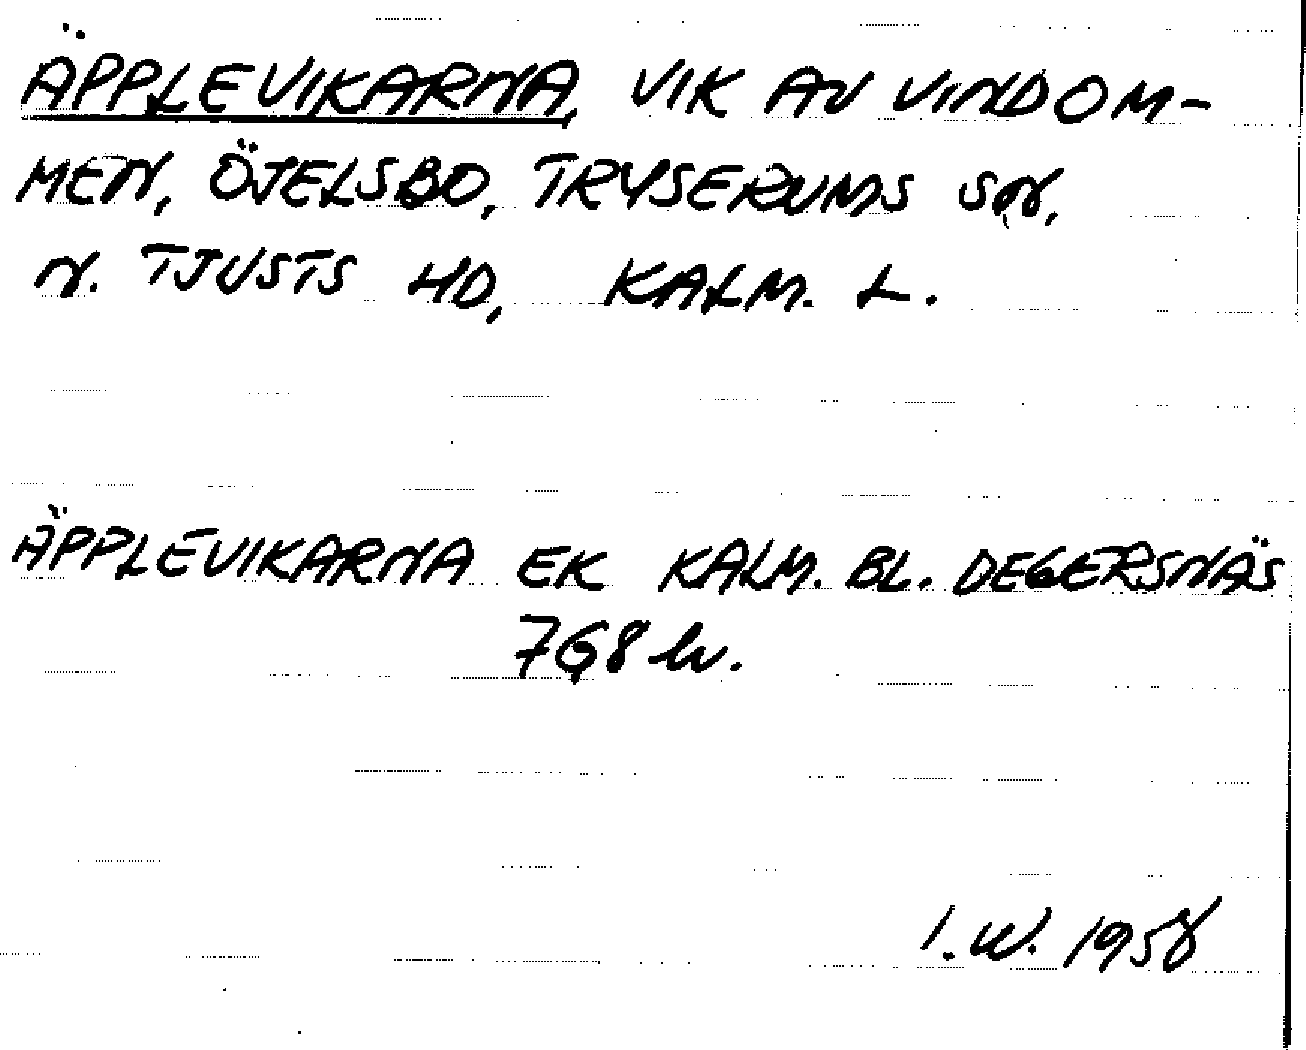 ÄPPLEVIKARNA, VIK AV VINDOM-
MEN, ÖJELSBO, TRYSERUMS SN,
N. TJUSTS HD, KALM. L.
ÄPPLEVIKARNA EK KALM. BL. DEGERSNÄS
768 hv.
I.W. 1958